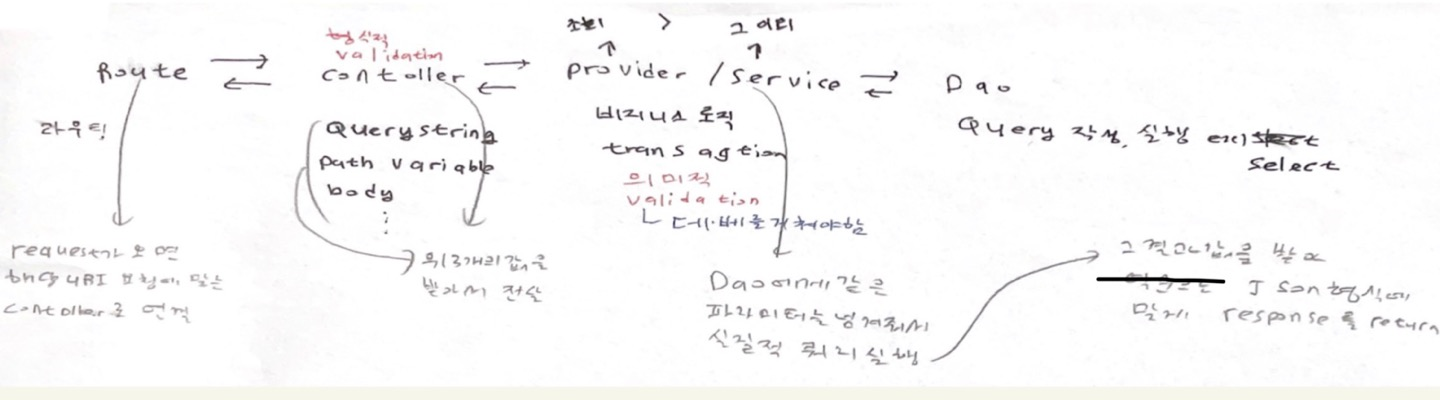 조회 > 그 외
형식적
validation
Route ⇄ contoller ⇄ provider / service ⇄ Dao
라우팅
Querystring
path variable
body
⋮
비지니스 로직
trans agtion
의미적
validation
└ 데·베를 거쳐야함
Query 작성, 실행 ex)
select
request가 오면
해당 URI 요청에 맞는
contoller로 연결
위 3개의 값을
받아서 전달
Dao에게 같은
파라미터를 넘겨줘서
실질적 쿼리 실행
그 결과값을 받아
Json형식에
맞게 response를 return